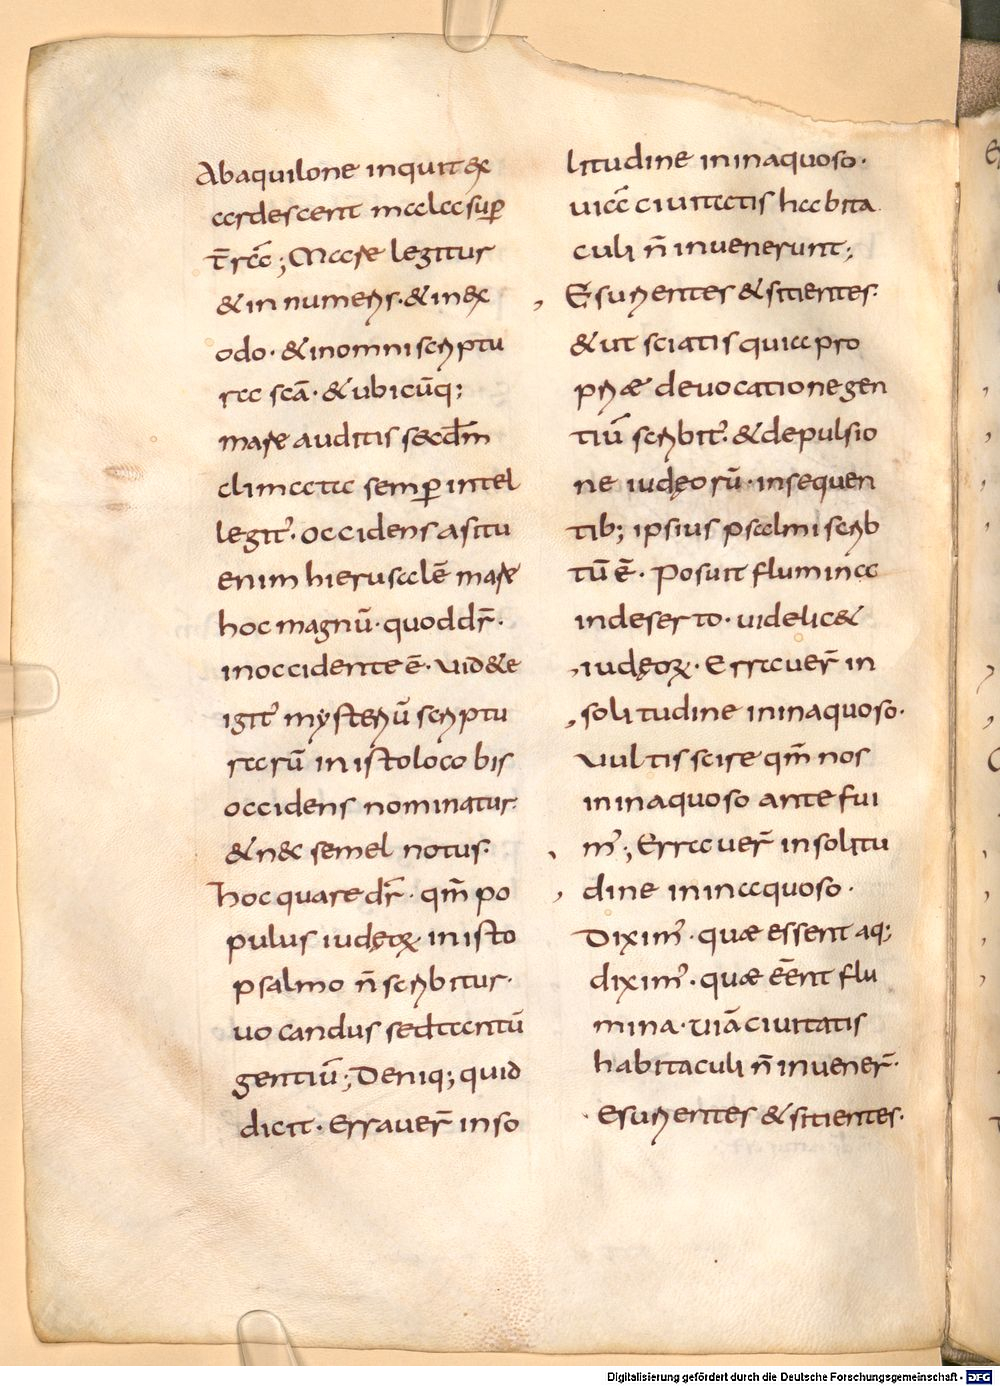 Abaquilone inquit ex
ardescent mala sup̄
t̄rā; Mare legitur
& in numeris. & in ex
odo. & in omni scriptu
ra scā. & ubicūq;
mare auditis secdm̄
climata semp̄ intel
legit᾽. occidens a situ
enim hierusalē mare
hoc magnū. quod dr̄.
in occidente ē. uid&e
igit᾽ mysteriū scriptu
rarū in isto loco bis
occidens nominatur
& nec semel notus.
hoc quare dr̄. qm̄ po
pulus iudęoꝝ in isto
psalmo n̄ scribitur.
uocandus sed tantū
gentiū; Deniq; quid
dicit. Errauer̄ in so
litudine in inaquoso.
uiā ciuitatis habita
culi n̄ inuenerunt;
Esurientes & sitientes.
& ut sciatis quia pro
priæ de uocatione gen
tiū scribit᾽. & depulsio
ne iudęorū. insequen
tib; ipsius psalmi scrib
tū ē. Posuit flumina
in deserto. uidelic&
iudęoꝝ. Errauer̄ in
solitudine in inaquoso.
Vultis scire qm̄ nos
in inaquoso ante fui
m᾽; Errauer̄ in solitu
dine in inaquoso.
Dixim᾽. quæ essent aq;
dixim᾽. quæ eēent flu
mina. uiā ciuitatis
habitaculi n̄ inuener̄.
Esurientes & sitientes.
Digitalisierung gefördert durch die Deutsche Forschungsgemeinschaft - DFG